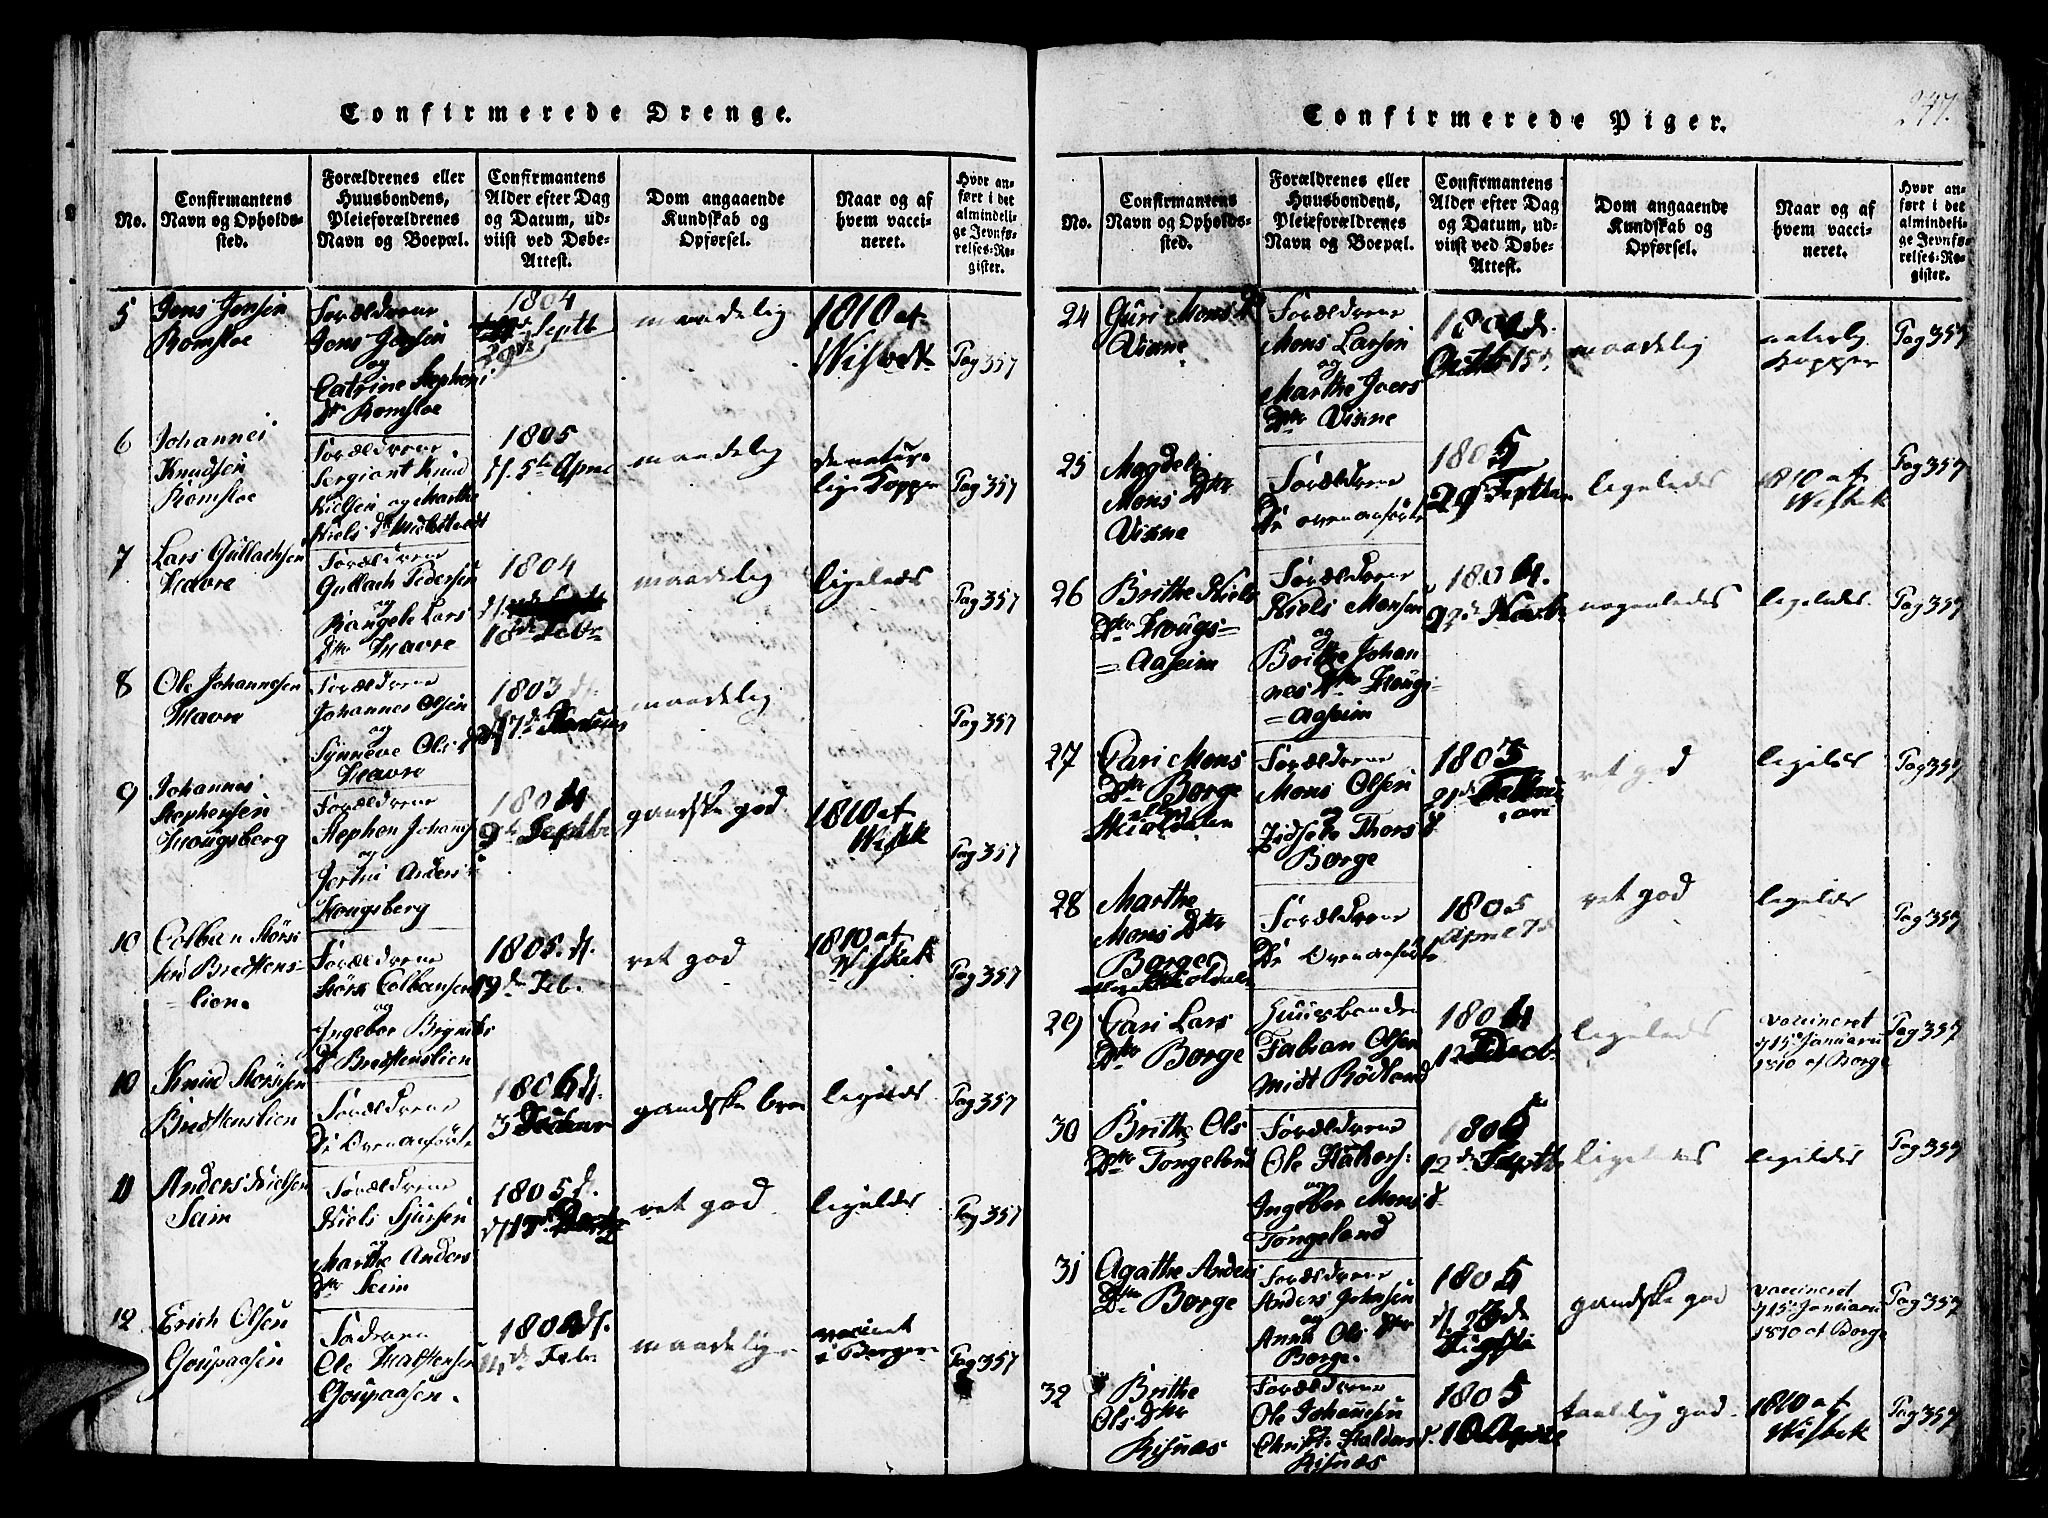 Confirmerede Drenge.
No.
Confirmantens
Navn og Opholds-
sted.
Forældrenes eller
Huusbondens,
Pleieforældrenes
Navn og Boepæl.
Confirmantens
Alder efter Dag
og Datum, ud-
viist ved Døbe-
Attest.
Dom angaaende
Kundskab og
Opførsel.
Naar og af
hvem vacci-
neret.
Hvor an-
ført i det
almindeli-
ge Jevnfø-
relses-Re-
gister.
5
Jens Jensen
Romsloe
Forældrene
Jens Jensen
og
Catrine Stephens
Dtr Romsloe
1804
Septb
29de
maadelig
1810 af
Wisbek
Pag 357
6
Johannes
Knudsen
Romsloe
Forældrene
Sergiant Knud
Nielsen og Marthe
Niels Dtr
1805
d. 5te April
maadelig
de natur-
lige Kopper
Pag 357
7
Lars Gullachsen
Havre
Forældrene
Gullach Pedersen
og
Rangele Lars
Dtr Havre
1804
d.
18de Febr
maadelig
ligeleds
Pag 357
8
Ole Johannesen
Havre
Forældrene
Johannes Olsen
og
Synneve Ols D
Havre
1803 d.
maadelig
Pag 357
9
Johannes
Stephensen
Hougsberg
Forældrene
Stephen Johans
og
Anders
Hougsberg
1804
9de Septb
gandske god
1810 af
Wisbek
Pag 357
10
Colben Störs
sen Bredstens-
=lien.
Forældrene
Störs Colbensen
og
Ingebor
Dr Bredstenslien
1805. d.
19de Feb.
ret god
1810 af
Wisbek
Pag 357
10
Knud Störssen
Bredstenslien
Forældrene
De Ovenanförte
1806 d.
3
gandske brav
ligeleds
Pag 357
11
Anders Nielsen
Seim
Forældrene
Niels Sjursen
og
Marthe Anders
Dtr Seim
1805 d.
ret god
ligeleds
Pag 357
12
Erich Olsen
Goupaasen
Forældrene
Ole Halstensen
Goupaasen.
1804 d.
14de Feb.
maadelig
vaccinert
i Bergen
Pag 357
Confirmerede Piger.
247.
No.
Confirmantens
Navn og Opholds-
sted.
Forældrenes eller
Huusbondens,
Pleieforældrenes
Navn og Boepæl.
Confirmantens
Alder efter Dag
og Datum, ud-
viist ved Døbe-
Attest.
Dom angaaende
Kundskab og
Opførsel.
Naar og af
hvem vacci-
neret.
Hvor an-
ført i det
almindeli-
ge Jevnfø-
relses-Re-
gister.
24
Guri Mons D
Visne
Forældrene
Mons Larsen
og
Marthe Joers
Dtr Visne
1804 d.
Octbr 15de
maadelig
naturlig
Kopper
Pag 357
25
Magdeli
Mons Dtr
Visne
Forældrene
De ovenanförte
1805
29 Septbr
ligeleds
1810 af
Wisbek
Pag 357
26
Brithe Niels
Dtr Hougs=
=Aaseim
Forældrene
Niels Monsen
og
Brithe Johan
nes Dtr Hougs=
=Aaseim
1804.
nogenledes
ligeledes
Pag 357
27
Cari Mons
Dtr Borge
Forældrene
Mons Olsen
og
Zidsele Thors D
Borge
1803
21de
ret god
ligeleds
Pag 357
28
Marthe
Mons Dtr
Borge
Forældrene
De Ovenanförte
1805
April 7de
ret god
ligeleds
Pag 357
29
Cari Lars
Dtr Borge
Huusbonden
Fabian Olsen
Midt Rödland
1804
12 Decb.
ligeleds
vaccineret
15 Januarii
1810 af Borge
Pag 357
30
Brithe Ols
Dtr Tongeland
Forældrene
Ole
og
Ingebor Mons D.
Tongeland
1805
12de Septb
ligeleds
ligeledes
Pag 357
31
Agathe Anders
Dtr Borge
Forældrene
Anders Johnsen
og
Anna Ols Dtr
Borge.
1805
gandske god
vaccineret
15 Januarii
1810 af Borge
Pag 357
32
Brithe
Ols Dtr
Risnæs
Forældrene
Ole Johannesen
Christi Halders D.
Risnæs
1805
10 April
taalelig god
1810 af
Wisbek
Pag 357